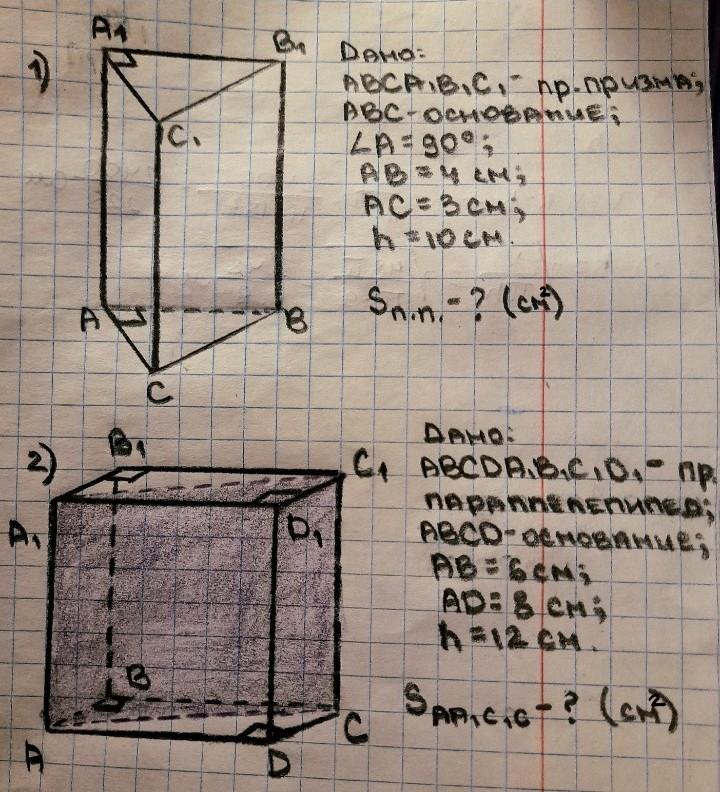 1)
A1
B1
C1
A
B
C
Дано:
ABCA1B1C1 - пр. призма;
ABC - основание;
∠A = 90°;
AB = 4 см;
AC = 3 см;
h = 10 см.
Sп.п. - ? (см²)
2)
B1
C1
A1
D1
B
A
D
C
Дано:
ABCDA1B1C1D1 - пр.
параллелепипед;
ABCD - основание;
AB = 6 см;
AD = 8 см;
h = 12 см.
SAA1C1C - ? (см²)